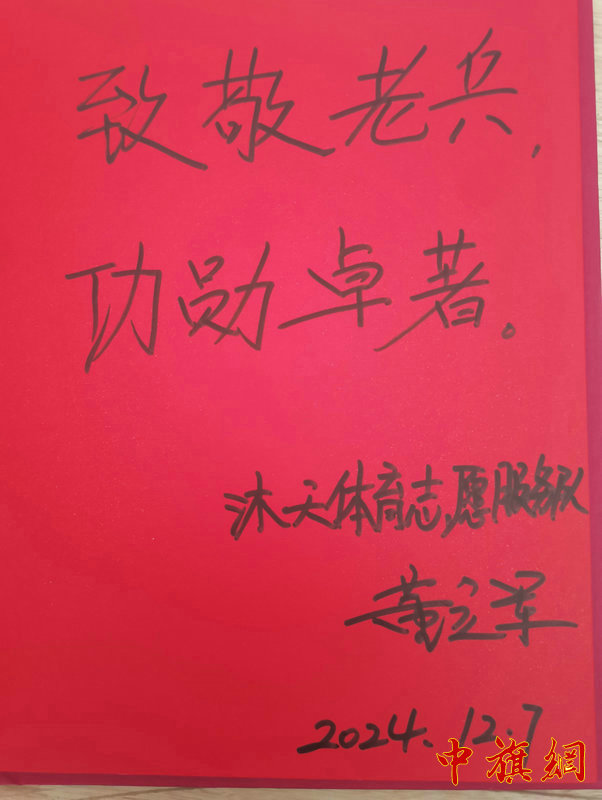 致敬老兵,
功勋卓著。
沐天体育志愿服务队
董立军
2024.12.7
中旗網